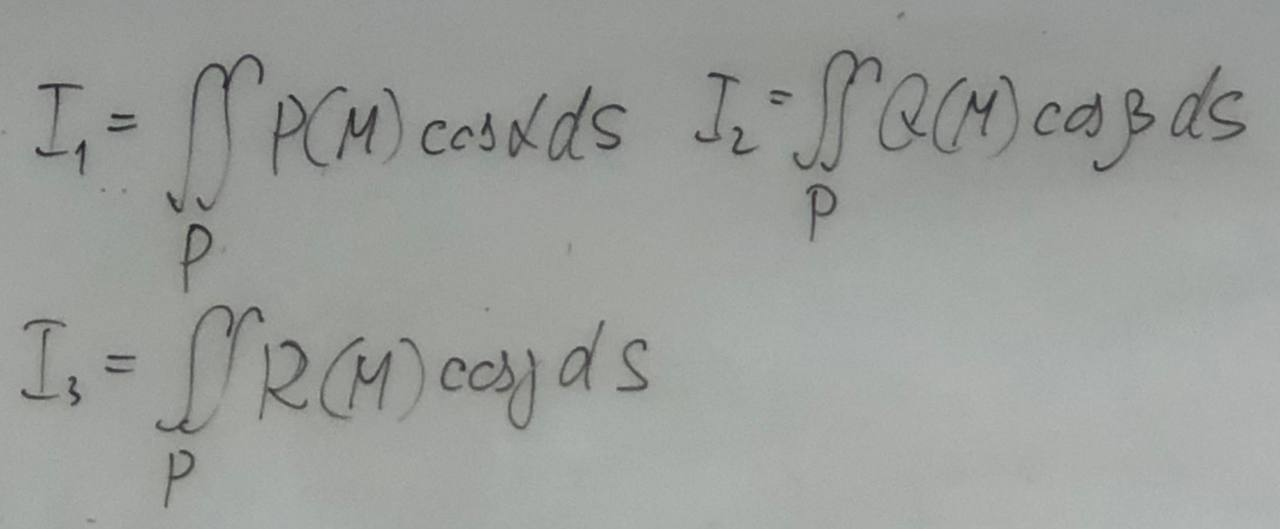 I₁ = ∬ P(M) cosα ds I₂ = ∬ Q(M) cosβ ds
P P
I₃ = ∬ R(M) cosγ ds
P